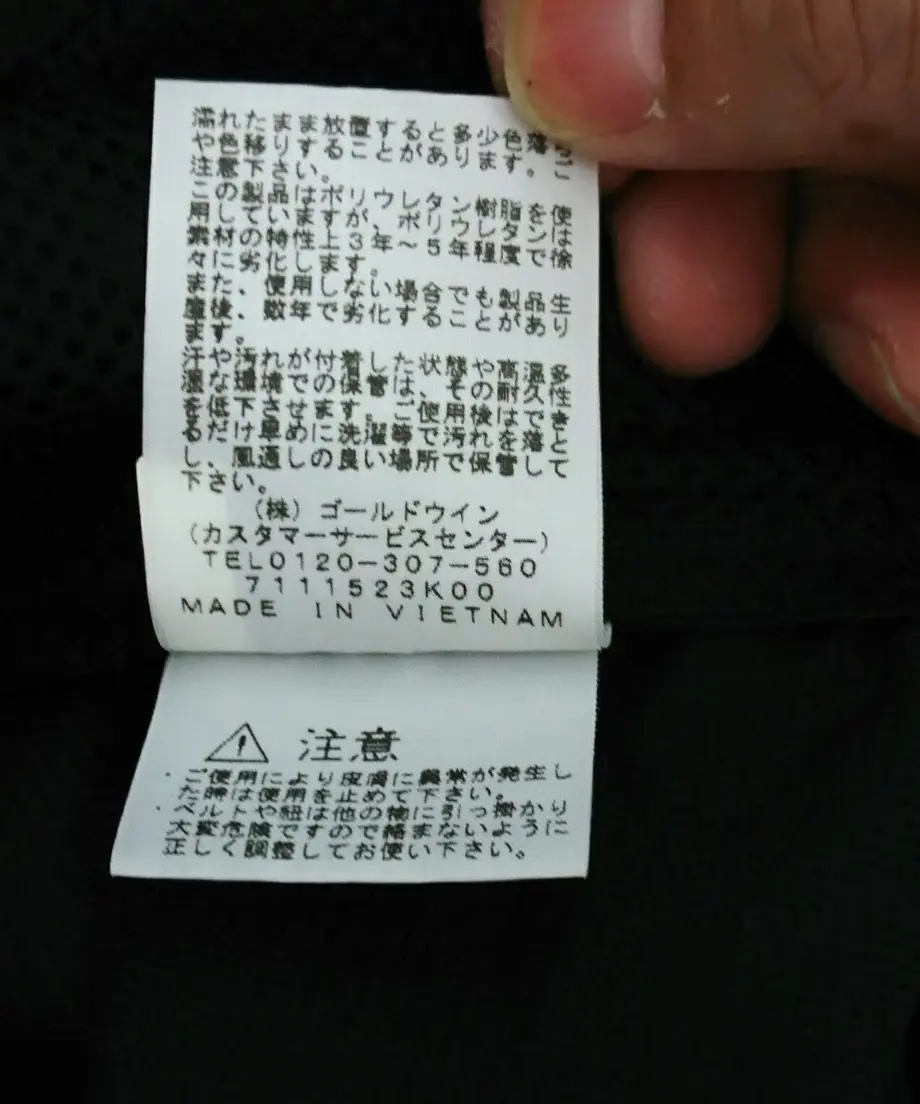 濡れたまま放置すると多少色落ち
や色移りすることがあります。ご
注意下さい。
この製品はポリウレタン樹脂を使
用していますが、ポリウレタンは
素材の特性上3年~5年程度で徐
々に劣化します。
また、使用しない場合でも製品生
産後、数年で劣化することがあり
ます。
汗や汚れが付着した状態や高温多
湿な環境での保管は、その耐久性
を低下させます。ご使用後はでき
るだけ早めに洗濯等で汚れを落と
し、風通しの良い場所で保管して
下さい。
(株)ゴールドウイン
(カスタマーサービスセンター)
TEL0120-307-560
7111523K00
MADE IN VIETNAM
注意
・ご使用により皮膚に異常が発生し
た時は使用を止めて下さい。
・ベルトや紐は他の物に引っ掛かり
大変危険ですので絡まないように
正しく調整してお使い下さい。